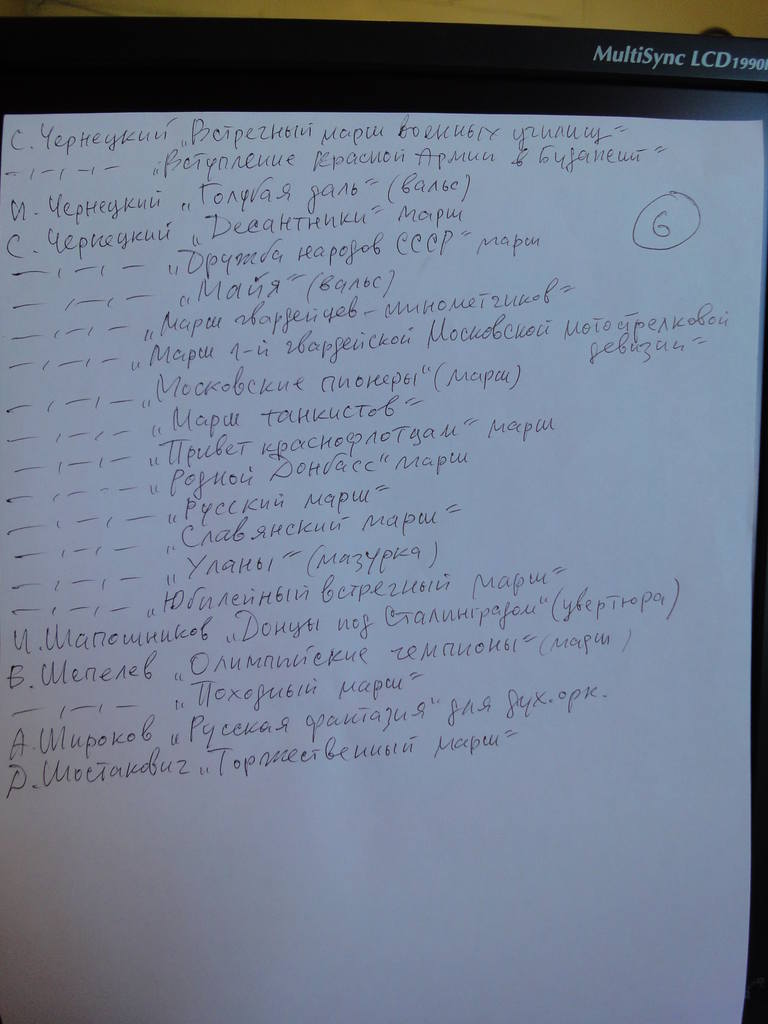 MultiSync LCD1990
С. Чернецкий „Встречный марш военных училищ“
–,–,– „Вступление Красной Армии в Будапешт“
И. Чернецкий „Голубая даль“ (вальс)
С. Чернецкий „Десантники“ марш
6
–,–,– „Дружба народов СССР“ марш
–,–,– „Майя“ (вальс)
–,–,– „Марш гвардейцев-миномётчиков“
–,–,– „Марш 1-й гвардейской Московской мотострелковой
девизии“
–,–,– „Московские пионеры“ (марш)
–,–,– „Марш танкистов“
–,–,– „Привет краснофлотцам“ марш
–,–,– „Родной Донбасс“ марш
–,–,– „Русский марш“
–,–,– „Славянский марш“
–,–,– „Уланы“ (мазурка)
–,–,– „Юбилейный встречный марш“
И. Шапошников „Донцы под Сталинградом“ (увертюра)
Б. Шепелев „Олимпийские чемпионы“ (марш)
–,–,– „Походный марш“
А. Широков „Русская фантазия“ для дух. орк.
Д. Шостакович „Торжественный марш“